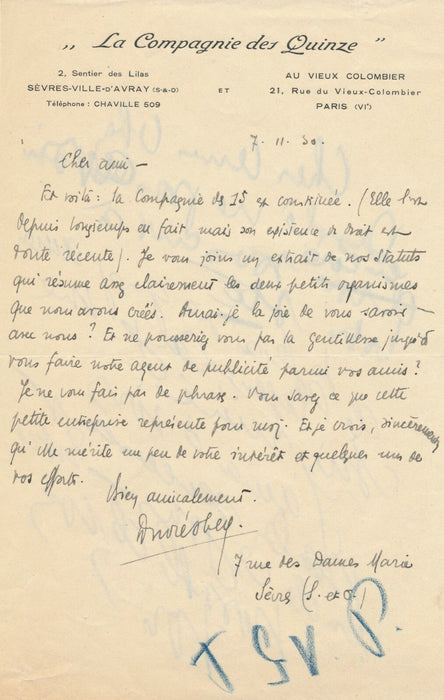 „ La Compagnie des Quinze ”
2, Sentier des Lilas
SÈVRES-VILLE-D'AVRAY (S-&-O)
Téléphone : CHAVILLE 509
ET
AU VIEUX COLOMBIER
21, Rue du Vieux-Colombier
PARIS (VIᵉ)
7. 11. 30.
Cher ami –
Et voilà : la Compagnie des 15 est constituée. (Elle l'est
depuis longtemps en fait mais son existence de droit est
toute récente). Je vous joins un extrait de nos Statuts
qui résume assez clairement les deux petits organismes
que nous avons créés. Aurai-je la joie de vous savoir
avec nous ? Et ne pousseriez vous pas la gentillesse jusqu'à
vous faire notre agent de publicité parmi vos amis ?
Je ne vous fais pas de phrase. Vous savez ce que cette
petite entreprise représente pour moi. Et je crois, sincèrement,
qu'elle mérite un peu de votre intérêt et quelques uns de
vos efforts.
Bien amicalement.
7 rue des Dames Marie
Sèvres (S. et O.)